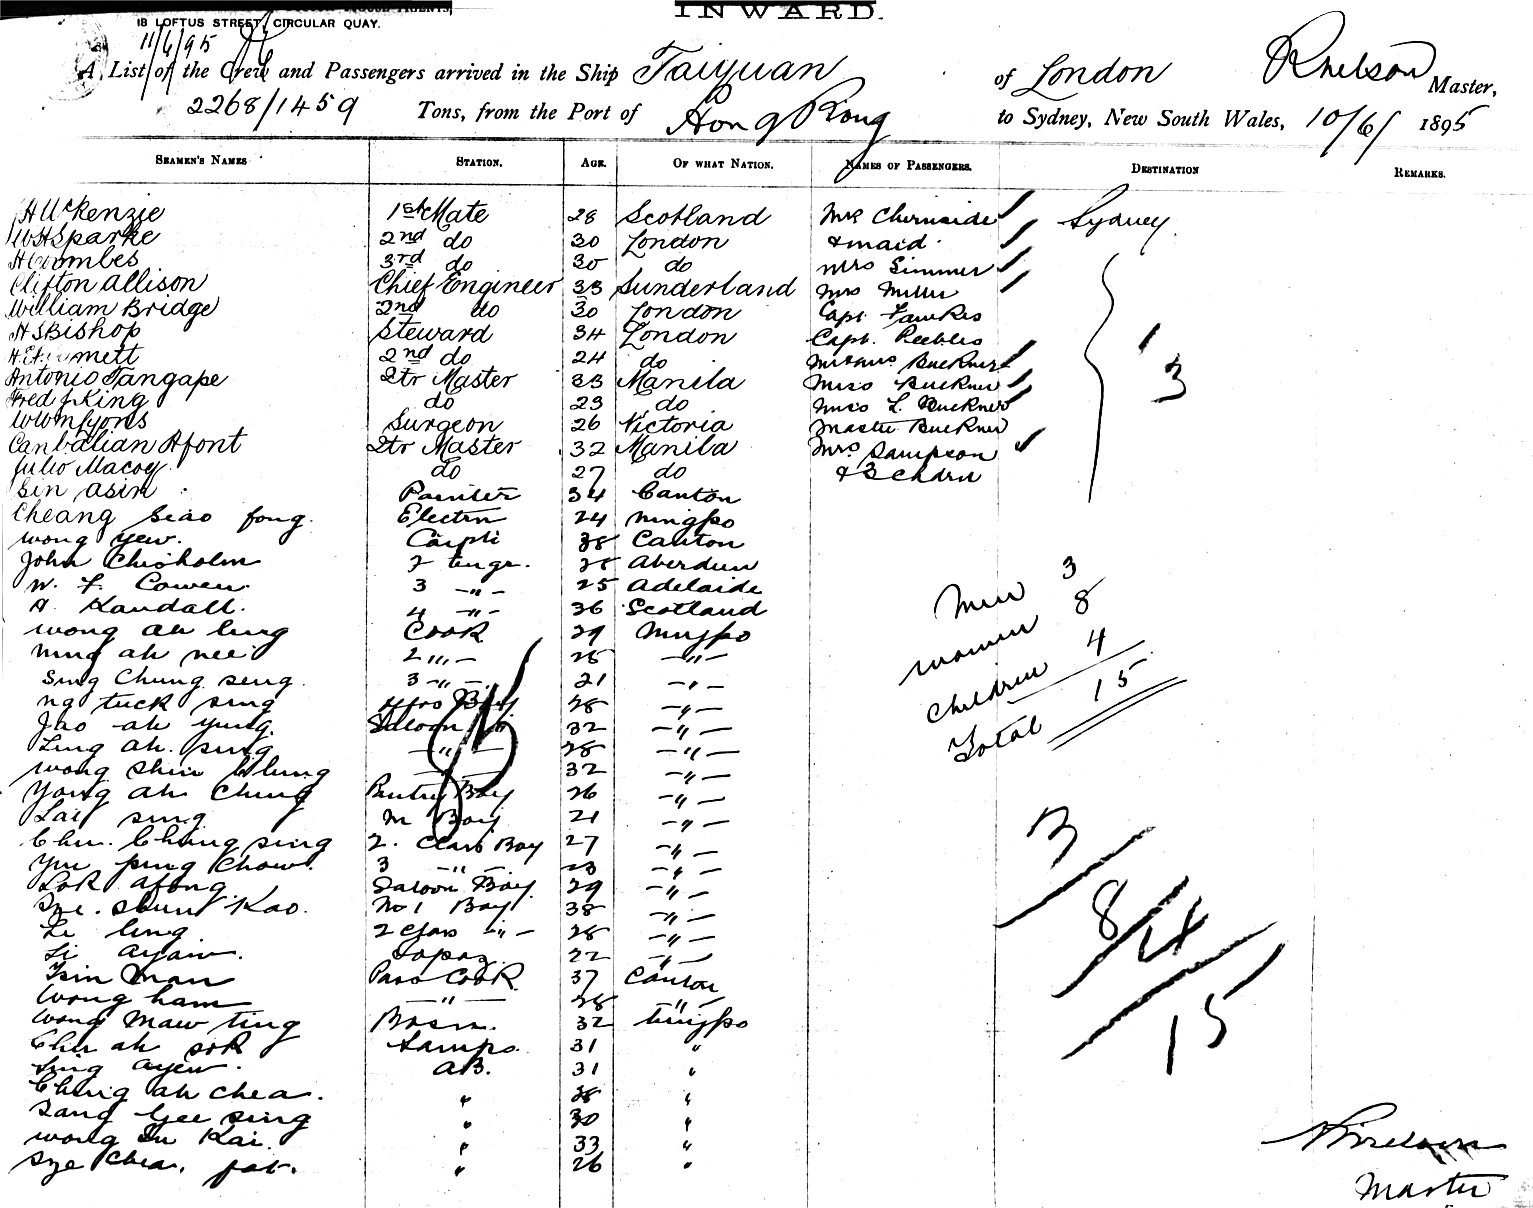 INWARD.
18 LOFTUS STREET, CIRCULAR QUAY.
11/6/95
A List of the Crew and Passengers arrived in the Ship Taiyuan of London RNelson Master,
2268/1459 Tons, from the Port of Hong Kong to Sydney, New South Wales, 10/6/ 1895
SEAMEN'S NAMES STATION. AGE. OF WHAT NATION. NAMES OF PASSENGERS. DESTINATION REMARKS.
H McKenzie 1st Mate 28 Scotland Mrs Chernside Sydney
W H Sparke 2nd do 30 London & maid
H Coombes 3rd do 30 do Mrs Simmer
Clifton Allison Chief Engineer 33 Sunderland Mrs Miller
William Bridge 2nd do 30 London Capt Fawkes
H S Bishop Steward 34 London Capt. Peebles 1
2nd do 24 do Buckner
Antonio Tangape Qtr Master 33 Manila Miss Buckner 3
Fred J King do 23 do Miss L. Buckner
Lyons Surgeon 26 Victoria Master Buckner
Canbalian Afont Qtr Master 32 Manila Mrs Sampson
Julio Macoy do 27 do & 3 Chdrn
Sin asin Painter 34 Canton
Cheang Seao fong. Electrn 24 Ningpo
Wong yew. Carptr 38 Canton
John Chisholm 2 Engr. 28 Aberdeen
W. F. Cowen. 3 -"- 25 Adelaide
A. Kandall. 4 -"- 36 Scotland
Men 3
Women 8
Children 4
Total 15
Wong ah lung Cook 29 Ningpo
Ning ah nee 2 "- 25 -"-
Sing Chung seng. 3 -"- 21 -"-
Ng tuck sing Boy 28 -"-
Jao ah yung. Saloon 32 -"-
Ling ah. sing -"- 28 -"-
Wong Shin -"- 32 -"-
Yong ah Ching Pantry Boy 26 -"-
Lai sing M Boy 21 -"-
Chu. Chung sing 2. Class Boy 27 -"-
Yu ping Chow. 3 -"- 23 -"-
Lok afong. Saloon Boy. 29 -"-
Sze. Shun Kao. No 1 Boy 38 -"-
Li ling 2 Class -"- 28 -"-
Li ayaw. 22 -"-
Tsin Man Pass Cook. 37 Canton
Wong ham -"- 28 -"-
Wong Maw ting Bosn. 32 Ningpo
Chu ah sok Lamps. 31 "
Sing ayew. AB. 31 "
Ching ah Chea. " 28 "
Sang Yee Sing " 30 "
Wong Su Kai. " 33 "
Sze Chea. fat. " 26 "
3/8/4/15
RNelson
Master